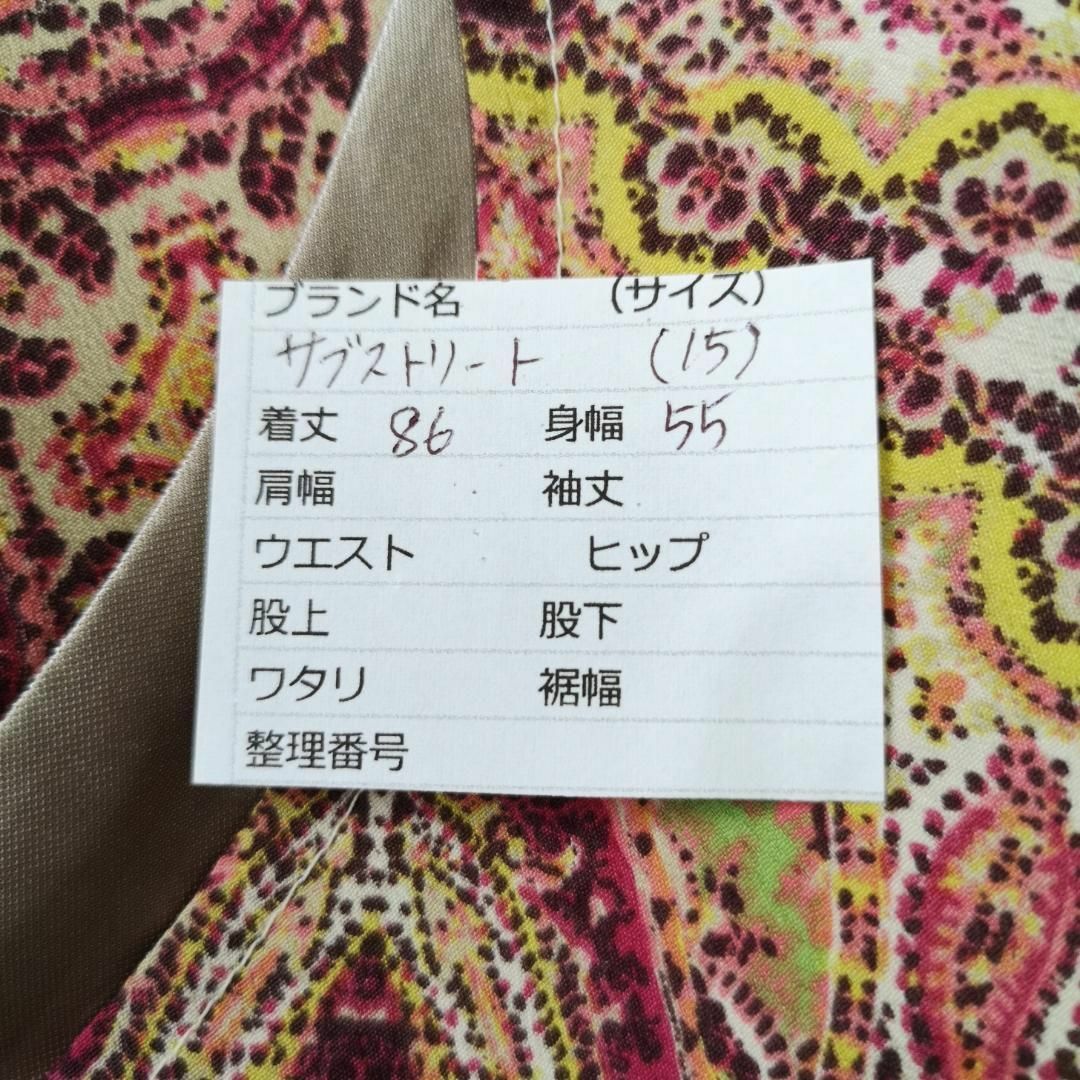 ブランド名 (サイズ)
サブストリート (15)
着丈 86 身幅 55
肩幅 袖丈
ウエスト ヒップ
股上 股下
ワタリ 裾幅
整理番号